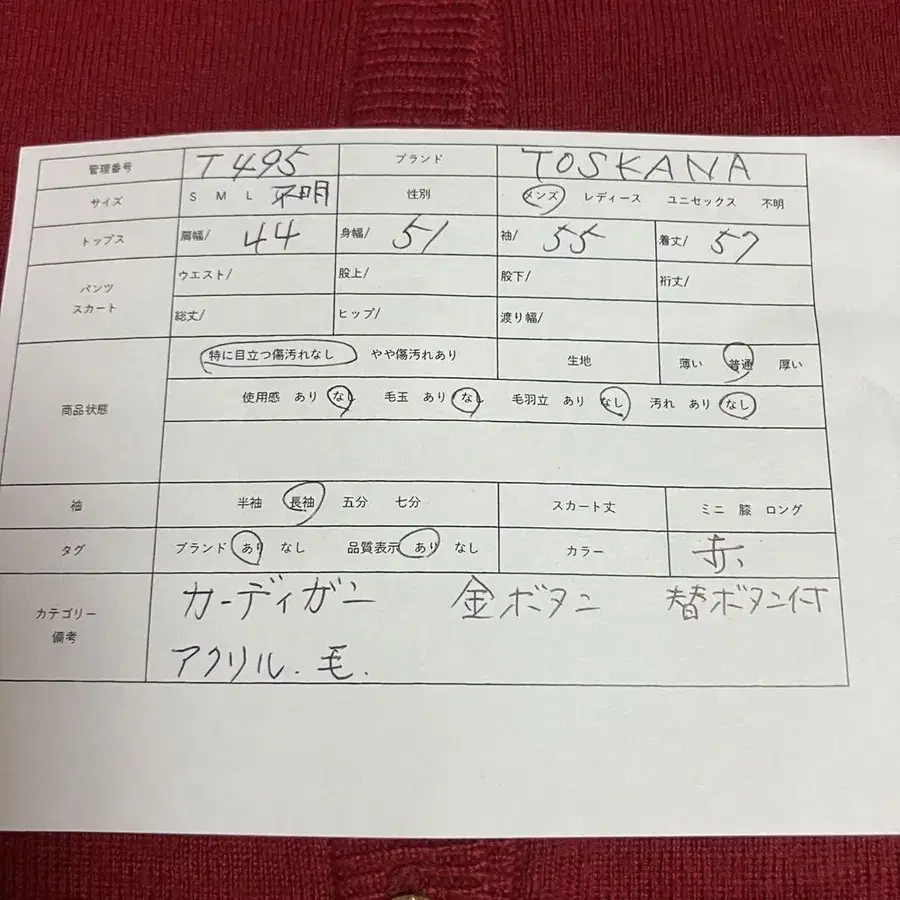 管理番号 T495 ブランド TOSKANA
サイズ S M L 不明 性別 メンズ レディース ユニセックス 不明
トップス 肩幅/ 44 身幅/ 51 袖/ 55 着丈/ 57
パンツ スカート ウエスト/ 股上/ 股下/ 裄丈/
総丈/ ヒップ/ 渡り幅/
商品状態 特に目立つ傷汚れなし やや傷汚れあり 生地 薄い 普通 厚い
使用感 あり なし 毛玉 あり なし 毛羽立 あり なし 汚れ あり なし
袖 半袖 長袖 五分 七分 スカート丈 ミニ 膝 ロング
タグ ブランド あり なし 品質表示 あり なし カラー 赤、
カテゴリー 備考 カーディガン 金ボタン 替ボタン付
アクリル.毛.